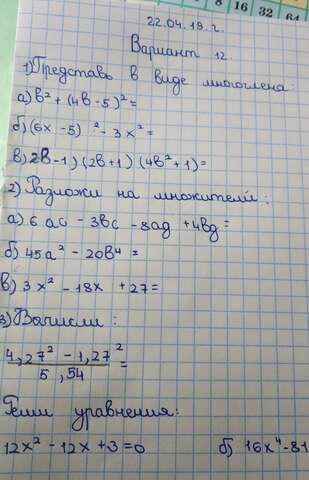 8 16 32 64
22.04.19.г.
Вариант 12.
1) Представь в виде многочлена:
а) в² + (4в - 5)² =
б) (6х - 5)² - 3х² =
в) 2в - 1) (2в + 1) (4в² + 1) =
2) Разложи на множители:
а) 6 ас - 3вс - 8ад + 4вд =
б) 45а² - 20в⁴ =
в) 3х² - 18х + 27 =
3) Вычисли:
4,27² - 1,27²
5,54 =
Реши уравнения:
12х² - 12х + 3 = 0 б) 16х⁴ - 81